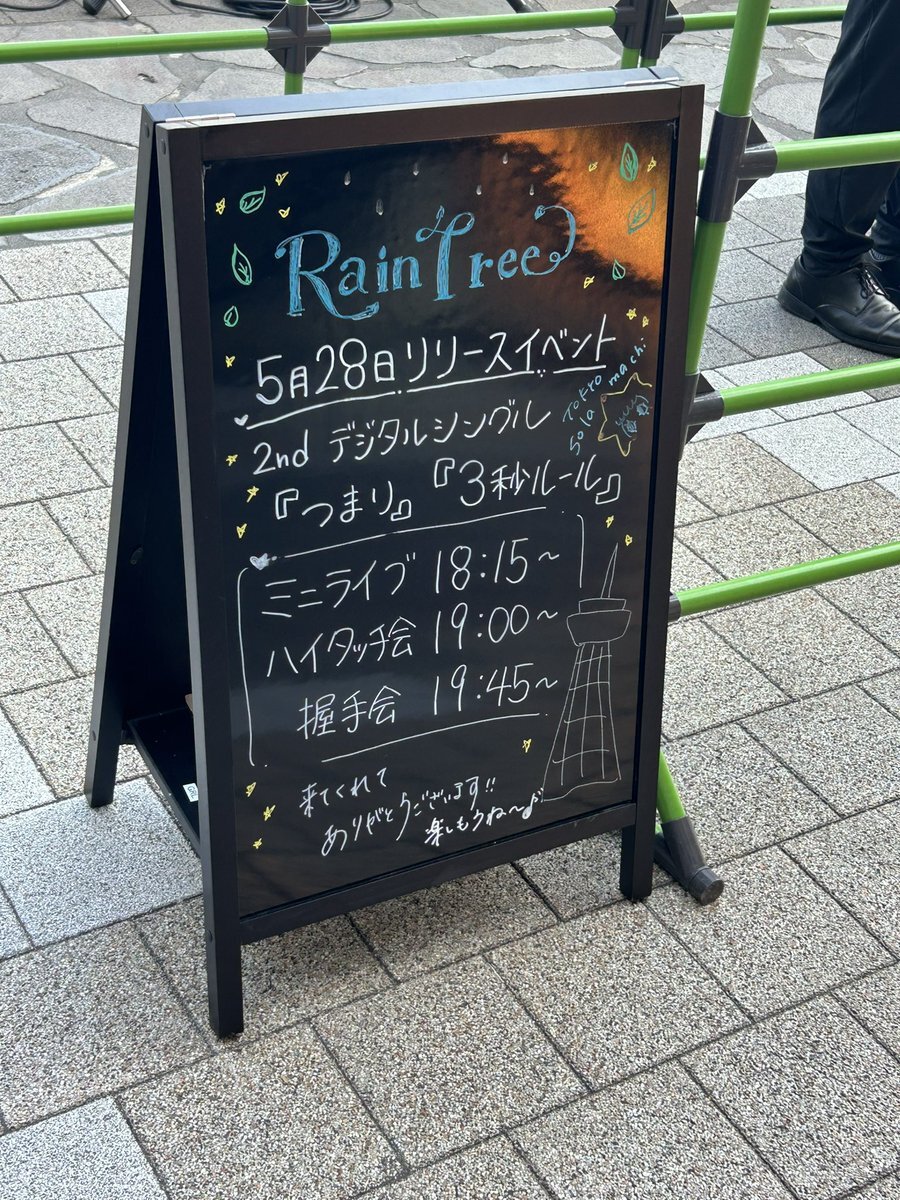 Rain Tree
5月28日リリースイベント
Tokyo
Solamachi
2nd デジタルシングル
『つまり』『3秒ルール』
ミニライブ 18:15~
ハイタッチ会 19:00~
握手会 19:45~
来てくれて
ありがとうございます!!
楽しもうね〜♪